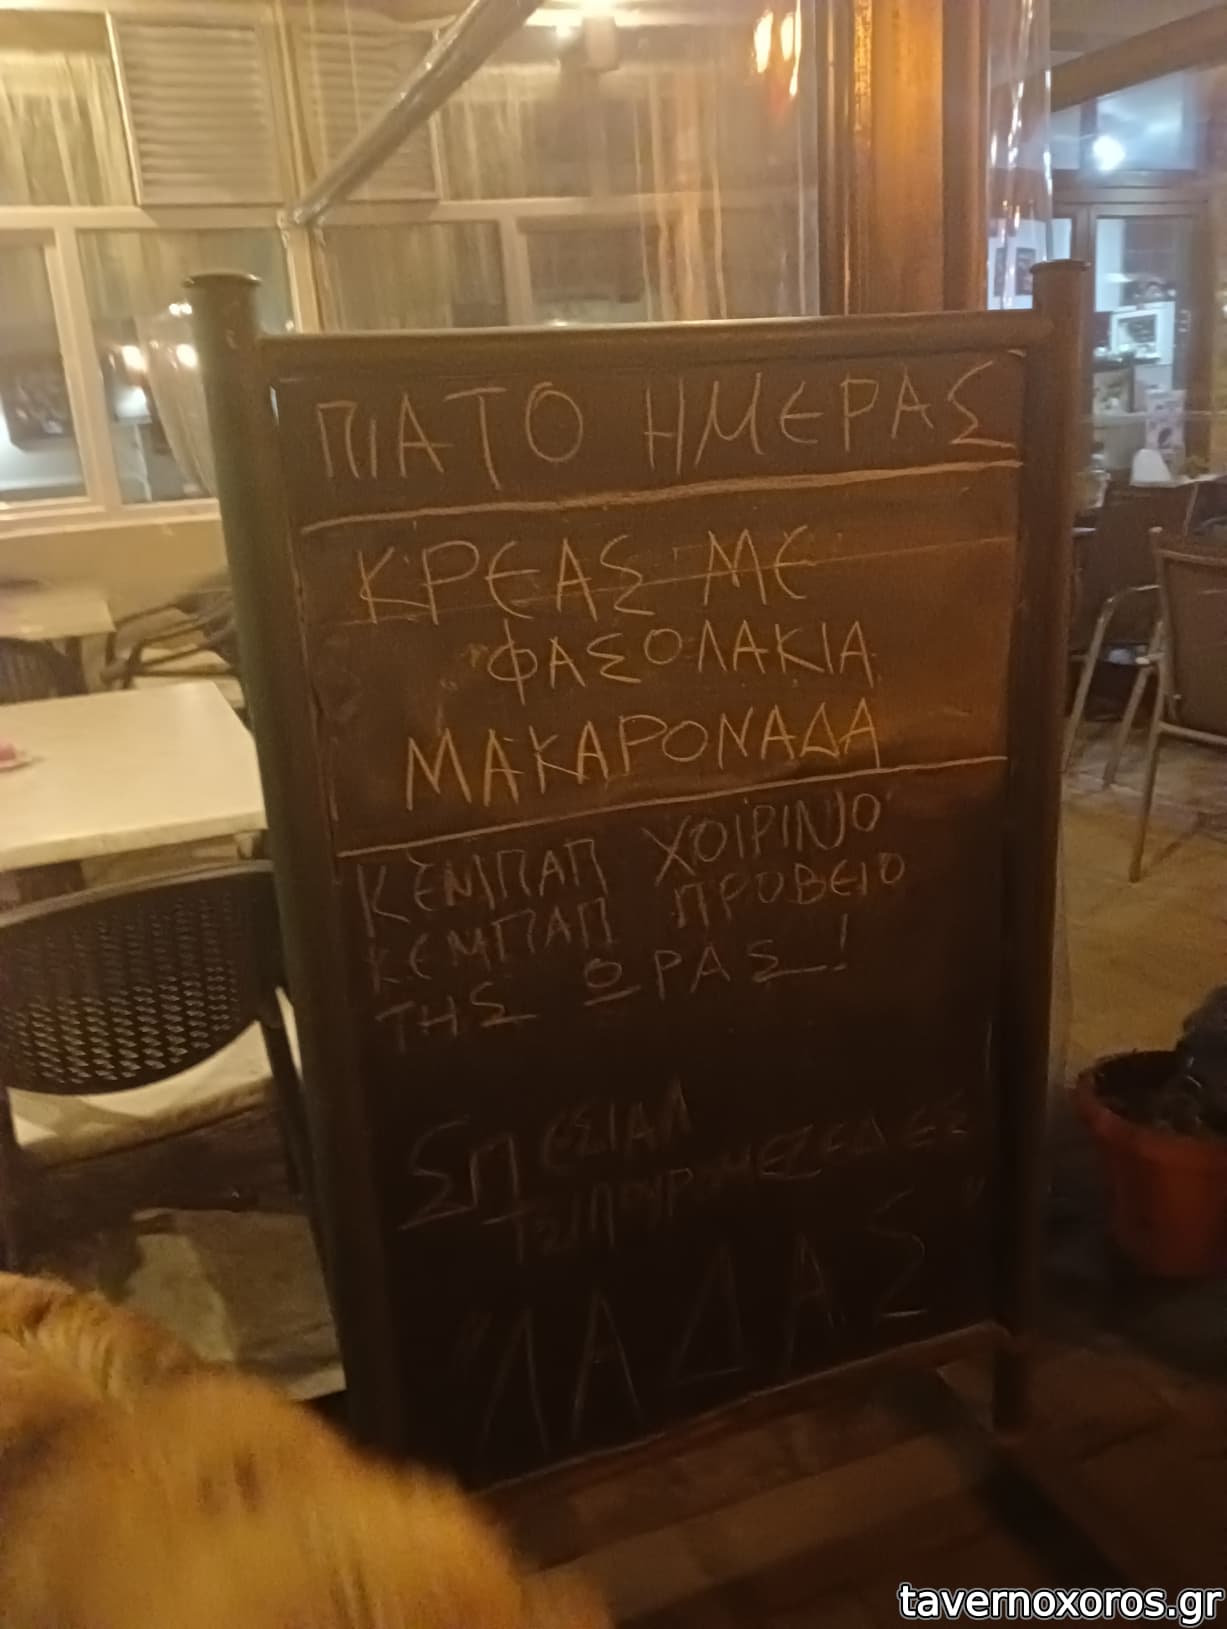 ΠΙΑΤΟ ΗΜΕΡΑΣ
ΚΡΕΑΣ ΜΕ
ΦΑΣΟΛΑΚΙΑ
ΜΑΚΑΡΟΝΑΔΑ
ΚΕΜΠΑΠ ΧΟΙΡΙΝΟ
ΚΕΜΠΑΠ ΠΡΟΒΕΙΟ
ΤΗΣ ΩΡΑΣ!
ΣΠΕΣΙΑΛ
ΤΣΙΠΟΥΡΟΜΕΖΕΔΕΣ
"ΛΛΔΑΣ"
tavernoxoros.gr